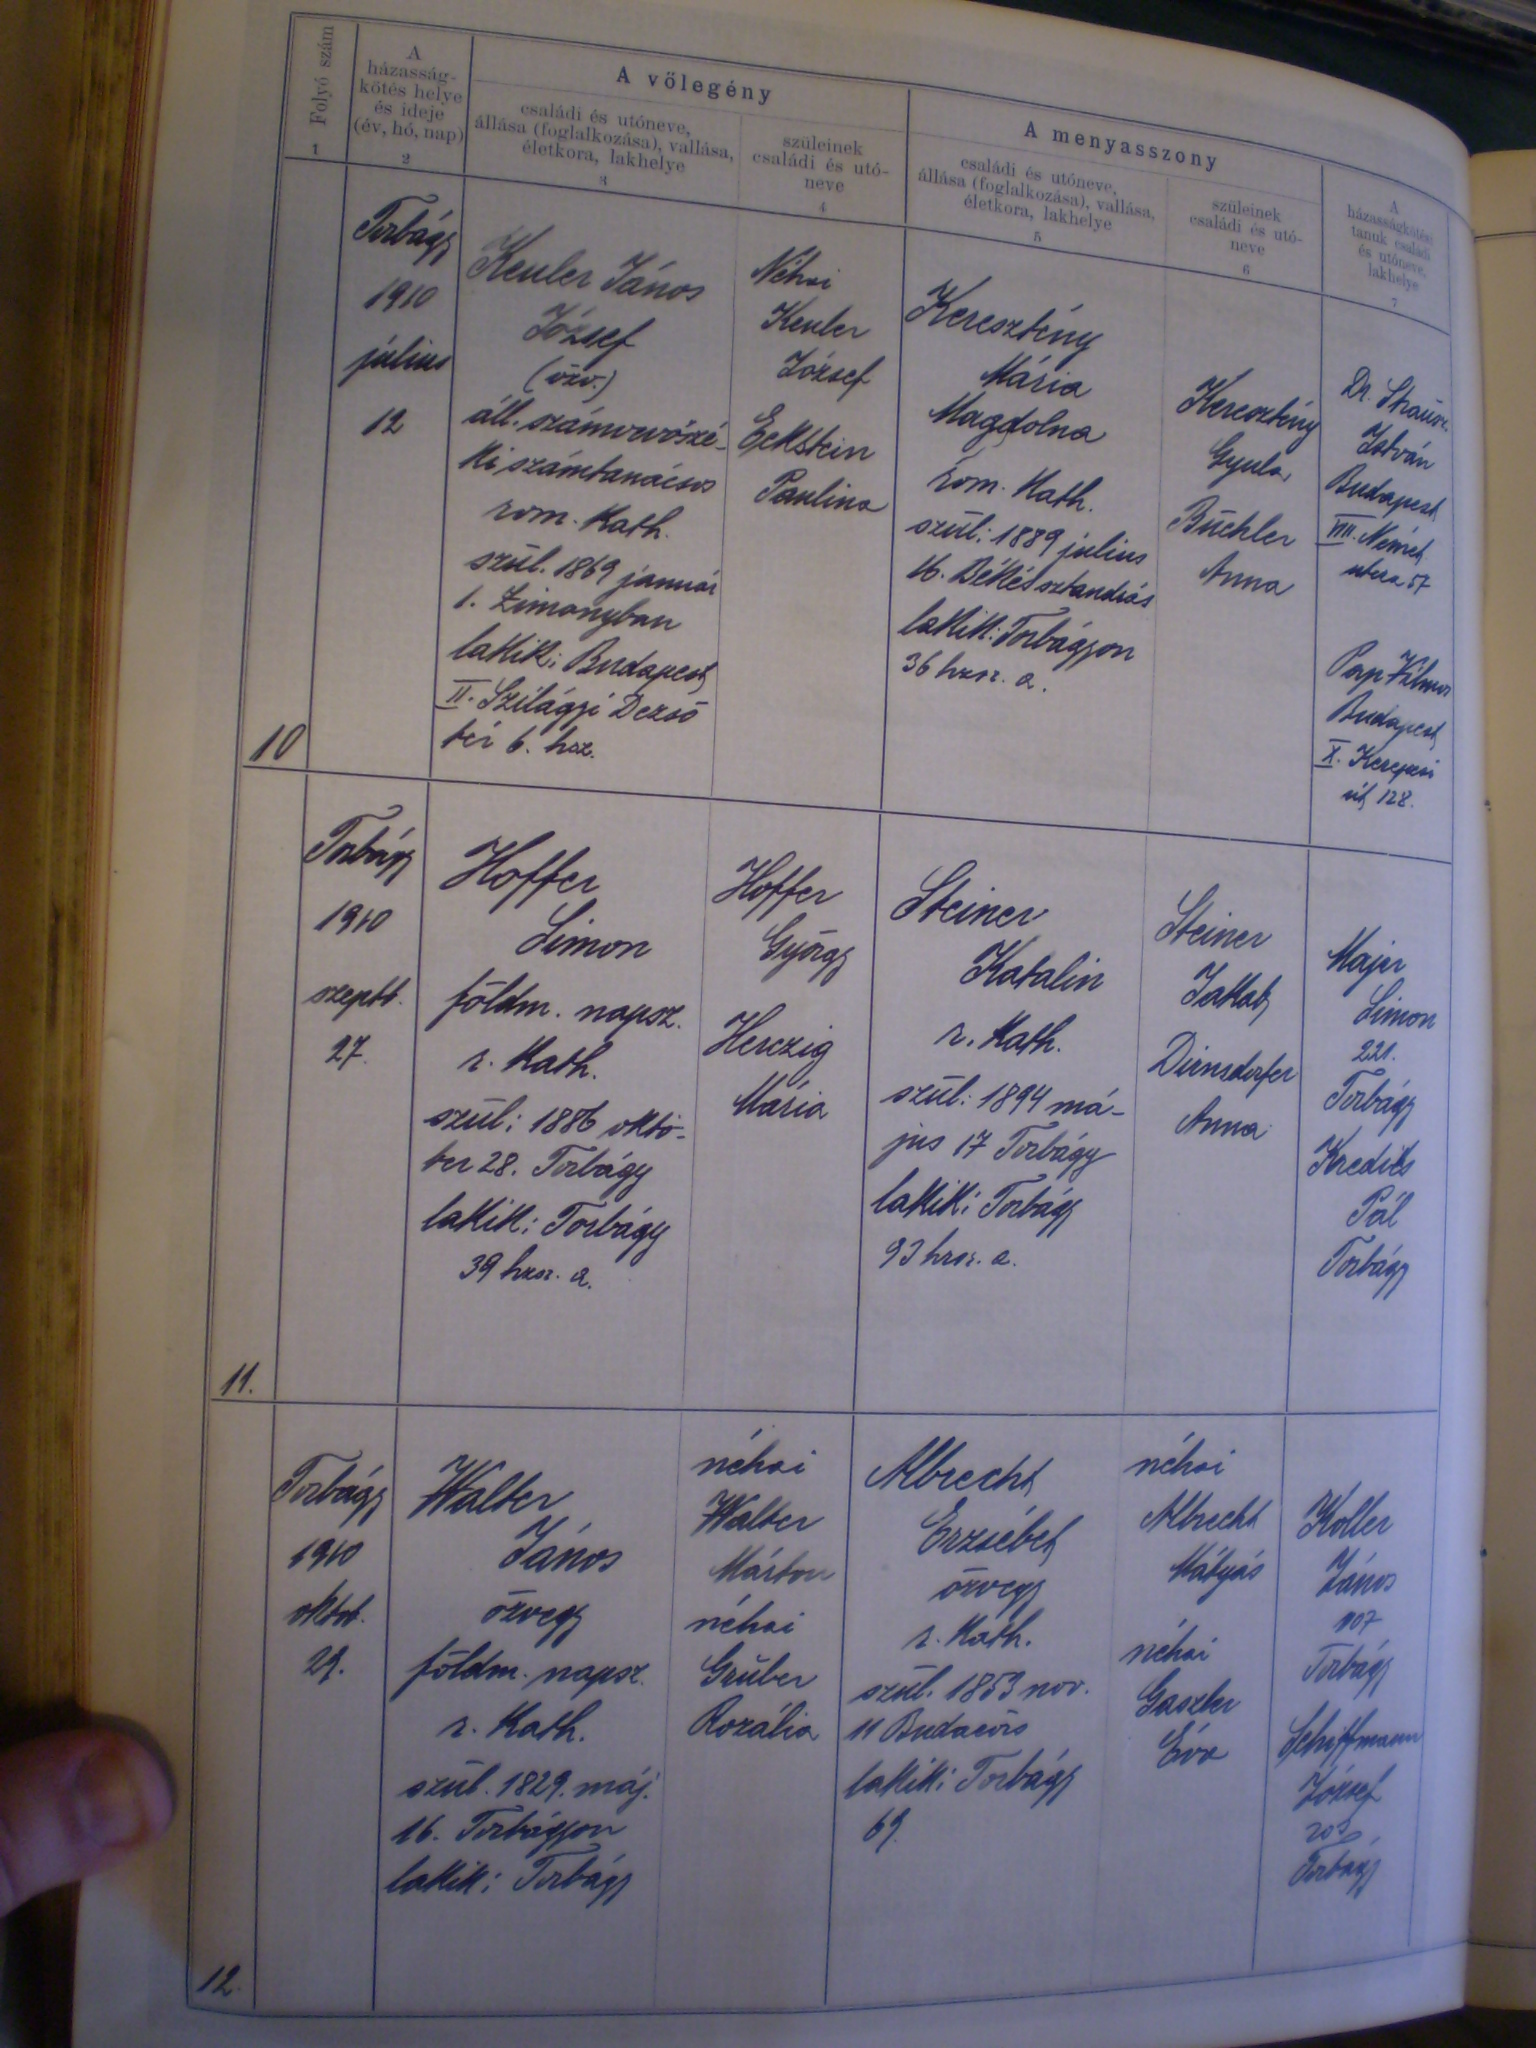 Folyó szám
1
A
házasság-
kötés helye
és ideje
(év, hó, nap)
2
A vőlegény
családi és utóneve,
állása (foglalkozása), vallása,
életkora, lakhelye
3
szüleinek
családi és utó-
neve
4
A menyasszony
családi és utóneve,
állása (foglalkozása), vallása,
életkora, lakhelye
5
szüleinek
családi és utó-
neve
6
A
házasságkötési
tanuk családi
és utóneve,
lakhelye
7
10
Torbágy
1910
július
12
Keuler János
József
(özv.)
áll. számvevőszé-
ki számtanácsos
rom. kath.
szül. 1869 január
1. Zimonyban
lakik: Budapest
II. Szilágyi Dezső
tér 6. hsz.
Néhai
Keuler
József
Eckstein
Paulina
Keresztény
Mária
Magdolna
rom. kath.
szül: 1889 július
16. Békésszentandrás
lakik: Torbágyon
36 hrsz. a.
Keresztény
Gyula
Büchler
Anna
Dr.
István
Budapest
VIII. Német
utca 57
Pap Vilmos
Budapest
X. Kerepesi
út 128.
11.
Torbágy
1910
szeptb.
27.
Hoffer
Simon
földm. napsz.
r. kath.
szül: 1886 októ-
ber 28. Torbágy
lakik: Torbágy
39 hrsz. a.
Hoffer
György
Herczig
Mária
Steiner
Katalin
r. kath.
szül: 1894 má-
jus 17 Torbágy
lakik: Torbágy
93 hrsz. a.
Steiner
Jakab
Dirnsdorfer
Anna
Majer
Simon
221.
Torbágy
Kredits
Pál
Torbágy
12.
Torbágy
1910
oktob.
29.
Walter
János
özvegy
földm. napsz.
r. kath.
szül. 1829. máj.
16. Torbágyon
lakik: Torbágy
néhai
Walter
Márton
néhai
Gruber
Rozália
Albrecht
Erzsébet
özvegy
r. kath.
szül. 1853 nov.
11 Budaörs
lakik: Torbágy
69.
néhai
Albrecht
Mátyás
néhai
Gaszler
Éva
Koller
János
107
Torbágy
Schiffmann
József
Torbágy